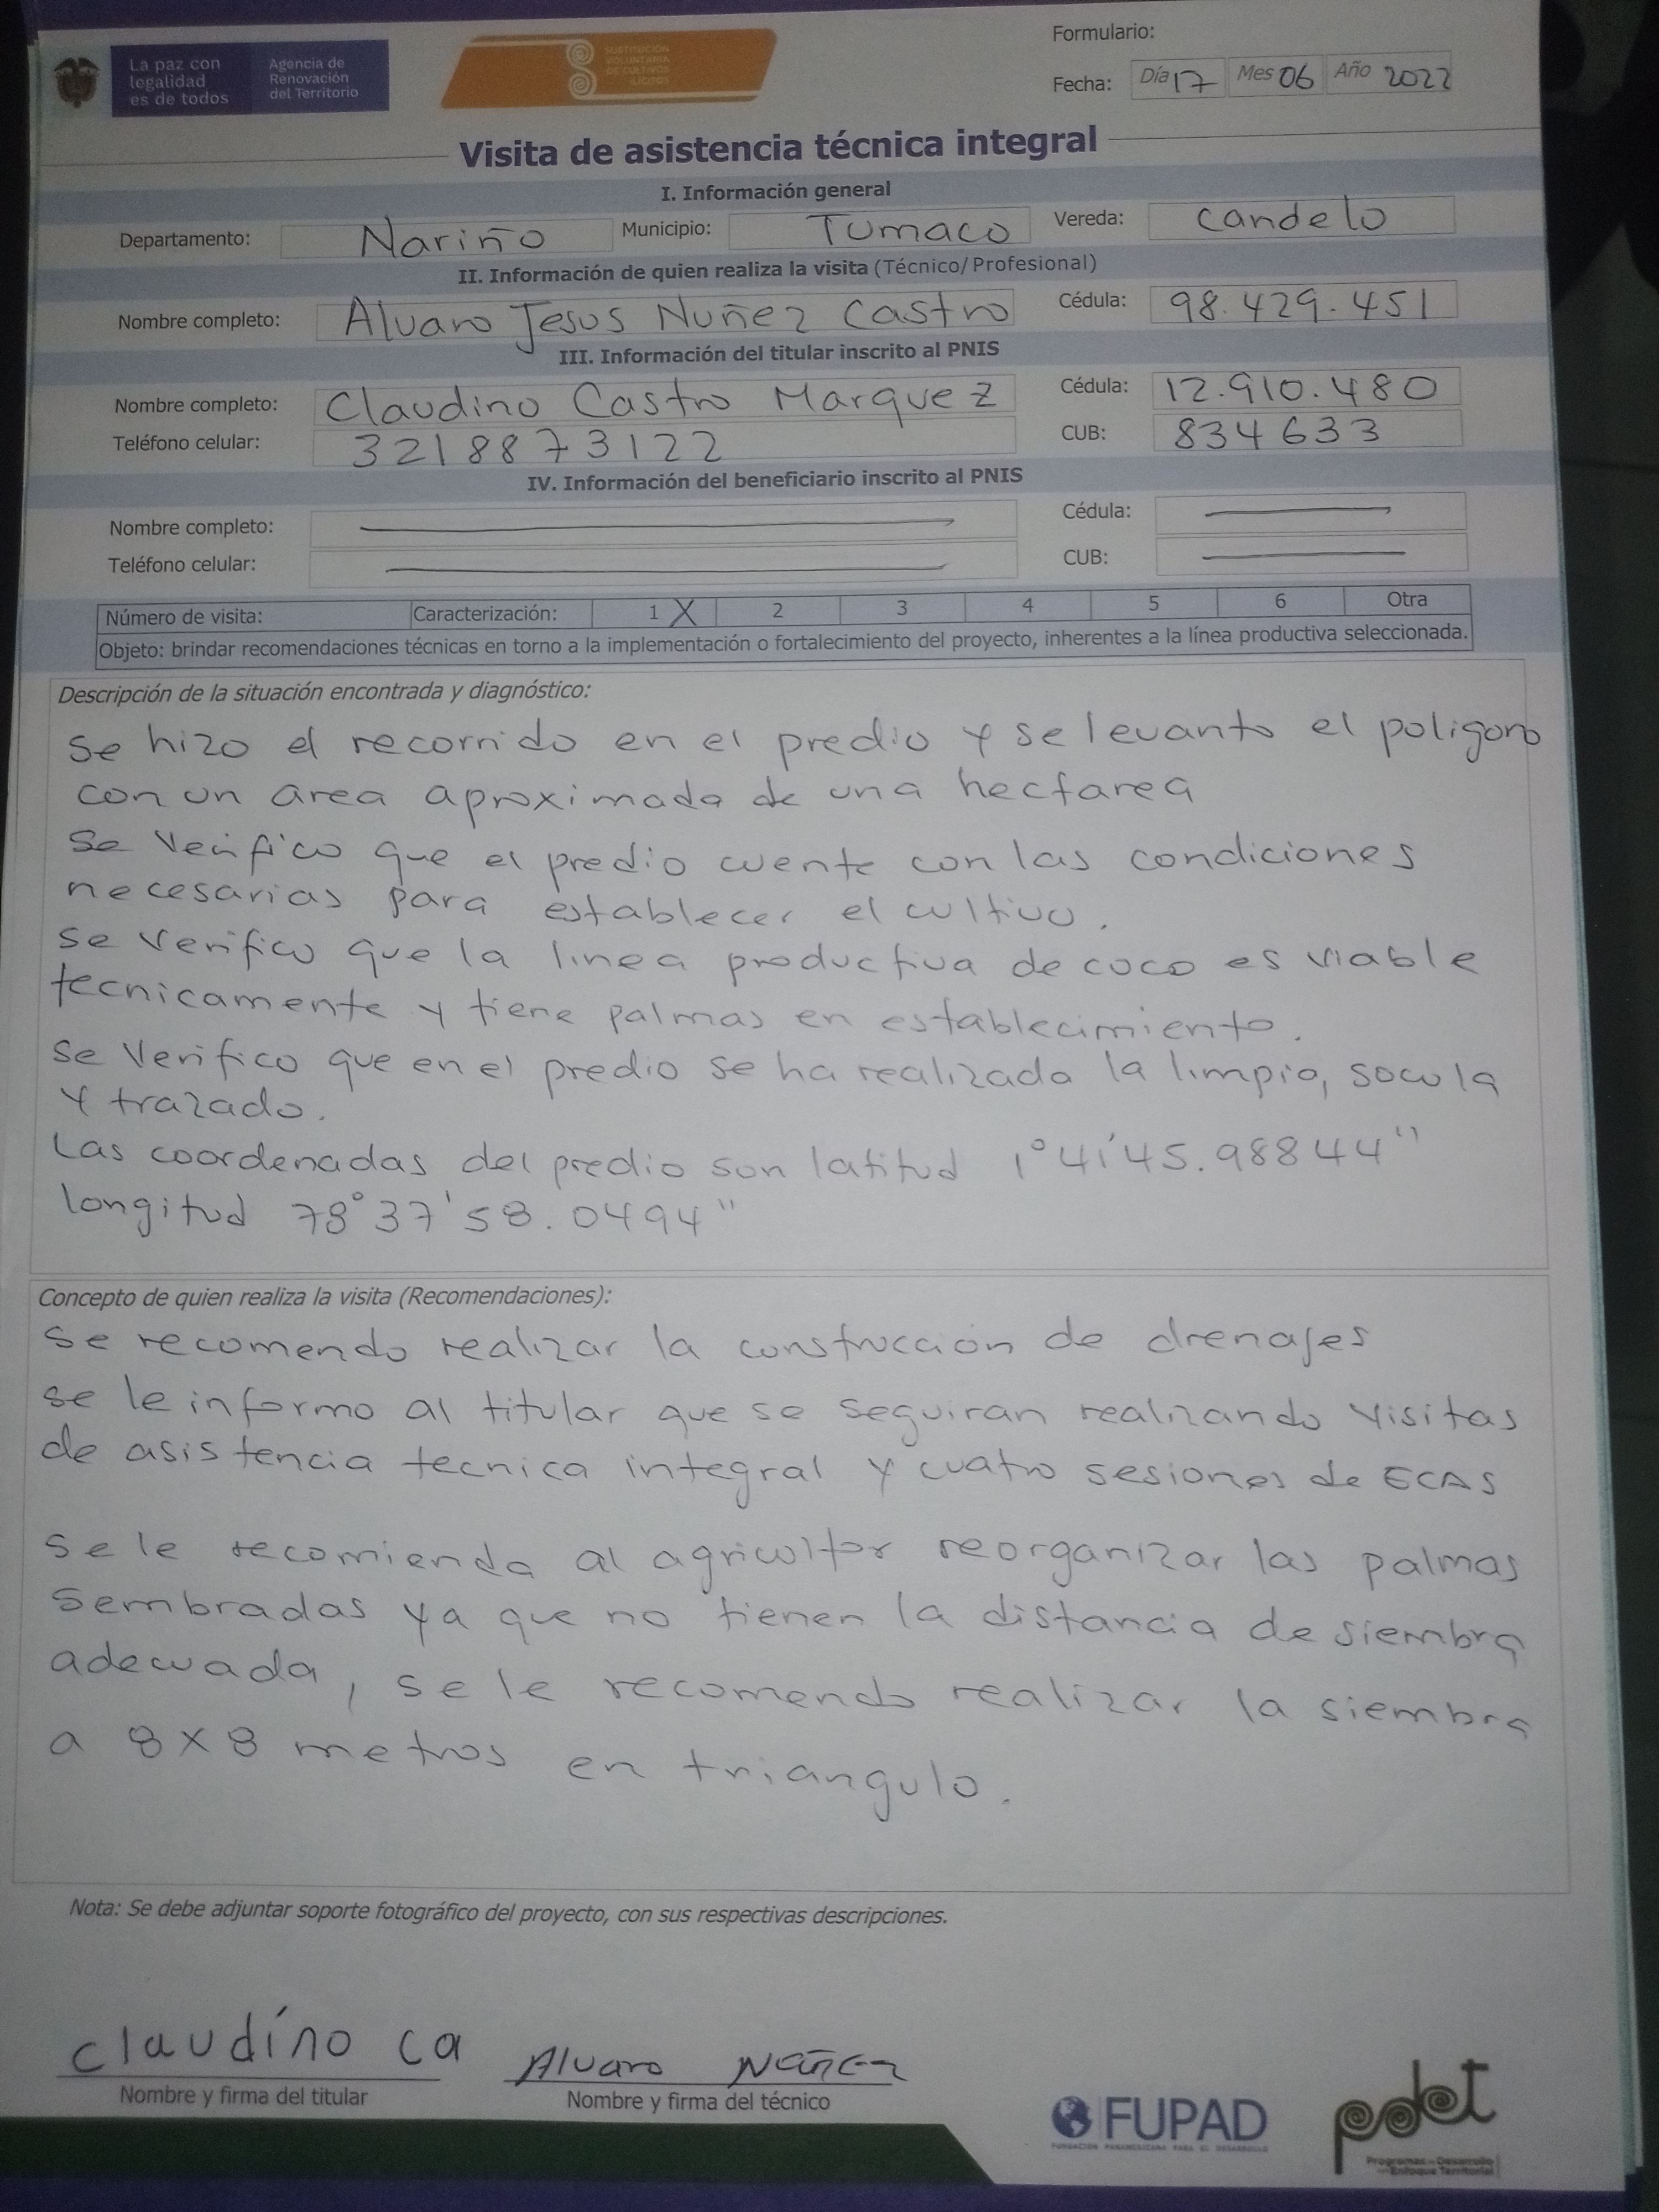 La paz con
legalidad
es de todos
Agencia de
Renovación
del Territorio
SUSTITUCIÓN
VOLUNTARIA
DE CULTIVOS
ILÍCITOS
Formulario:
Fecha: Día 17 Mes 06 Año 2022
Visita de asistencia técnica integral
I. Información general
Departamento: Nariño Municipio: Tumaco Vereda: Candelo
II. Información de quien realiza la visita (Técnico/Profesional)
Nombre completo: Alvaro Jesus Nuñez Castro Cédula: 98.429.451
III. Información del titular inscrito al PNIS
Nombre completo: Claudino Castro Marquez Cédula: 12.910.480
Teléfono celular: 3218873122 CUB: 834633
IV. Información del beneficiario inscrito al PNIS
Nombre completo: Cédula:
Teléfono celular: CUB:
Número de visita: Caracterización: 1 X 2 3 4 5 6 Otra
Objeto: brindar recomendaciones técnicas en torno a la implementación o fortalecimiento del proyecto, inherentes a la línea productiva seleccionada.
Descripción de la situación encontrada y diagnóstico:
Se hizo el recorrido en el predio y se levanto el poligono
con un area aproximada de una hectarea
Se Verifico que el predio cuente con las condiciones
necesarias para establecer el cultivo.
Se Verifico que la linea productiva de coco es viable
tecnicamente y tiene palmas en establecimiento.
Se Verifico que en el predio se ha realizado la limpia, socola
y trazado.
Las coordenadas del predio son latitud 1°41'45.98844"
longitud 78°37'58.0494"
Concepto de quien realiza la visita (Recomendaciones):
Se recomendo realizar la construccion de drenajes
se le informo al titular que se seguiran realizando visitas
de asistencia tecnica integral y cuatro sesiones de ECAS
Se le recomienda al agricultor reorganizar las palmas
Sembradas ya que no tienen la distancia de siembra
adecuada, se le recomendo realizar la siembra
a 8 x 8 metros en triangulo.
Nota: Se debe adjuntar soporte fotográfico del proyecto, con sus respectivas descripciones.
claudíno ca Alvaro Nuñez
Nombre y firma del titular Nombre y firma del técnico
FUPAD
FUNDACIÓN PANAMERICANA PARA EL DESARROLLO
pdet
Programas de Desarrollo
con Enfoque Territorial